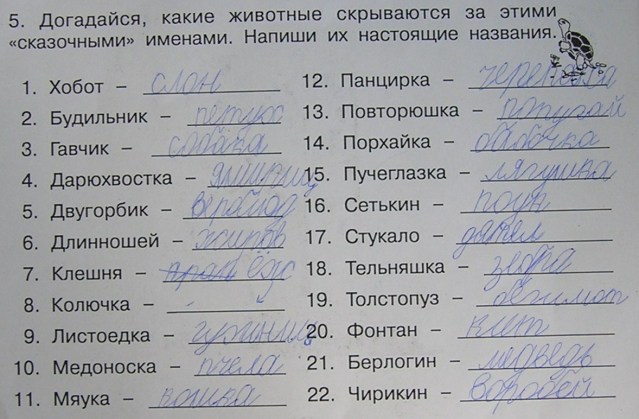 5. Догадайся, какие животные скрываются за этими
«сказочными» именами. Напиши их настоящие названия.
1. Хобот – слон
2. Будильник – петукс
3. Гавчик – собака
4. Дарюхвостка –
5. Двугорбик –
6. Длинношей – жираф
7. Клешня – ёжс
8. Колючка –
9. Листоедка – гусиниц
10. Медоноска – пчела
11. Мяука – кошка
12. Панцирка – черепаха
13. Повторюшка – попугай
14. Порхайка – бабочка
15. Пучеглазка – лягушка
16. Сетькин – поук
17. Стукало – дятел
18. Тельняшка – зебра
19. Толстопуз – бегимот
20. Фонтан – кит
21. Берлогин – медведь
22. Чирикин – воробей